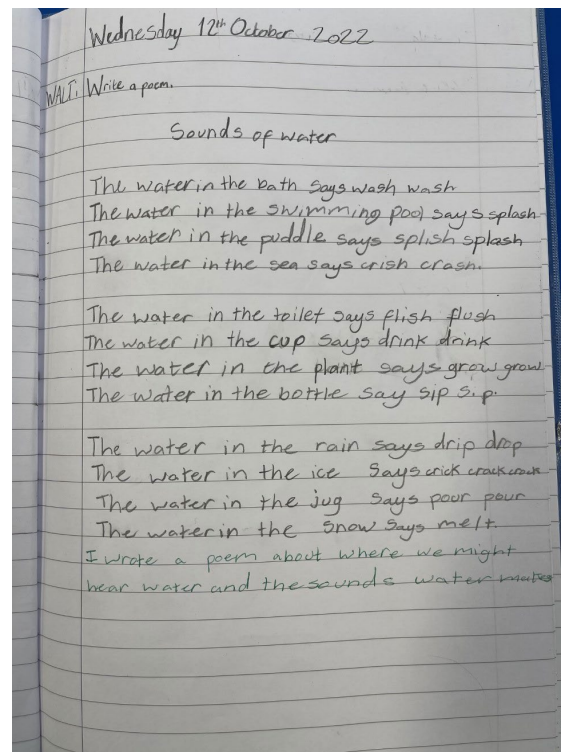 Wednesday 12th October 2022
WALT: Write a poem.
Sounds of water
The water in the bath says wash wash
The water in the swimming pool says splash
The water in the puddle says splish splash
The water in the sea says crish crash.
The water in the toilet says flish flush
The water in the cup says drink drink
The water in the plant says grow grow
The water in the bottle say sip sip.
The water in the rain says drip drop
The water in the ice says crick crack crack
The water in the jug says pour pour
The water in the snow says melt.
I wrote a poem about where we might
hear water and the sounds water makes